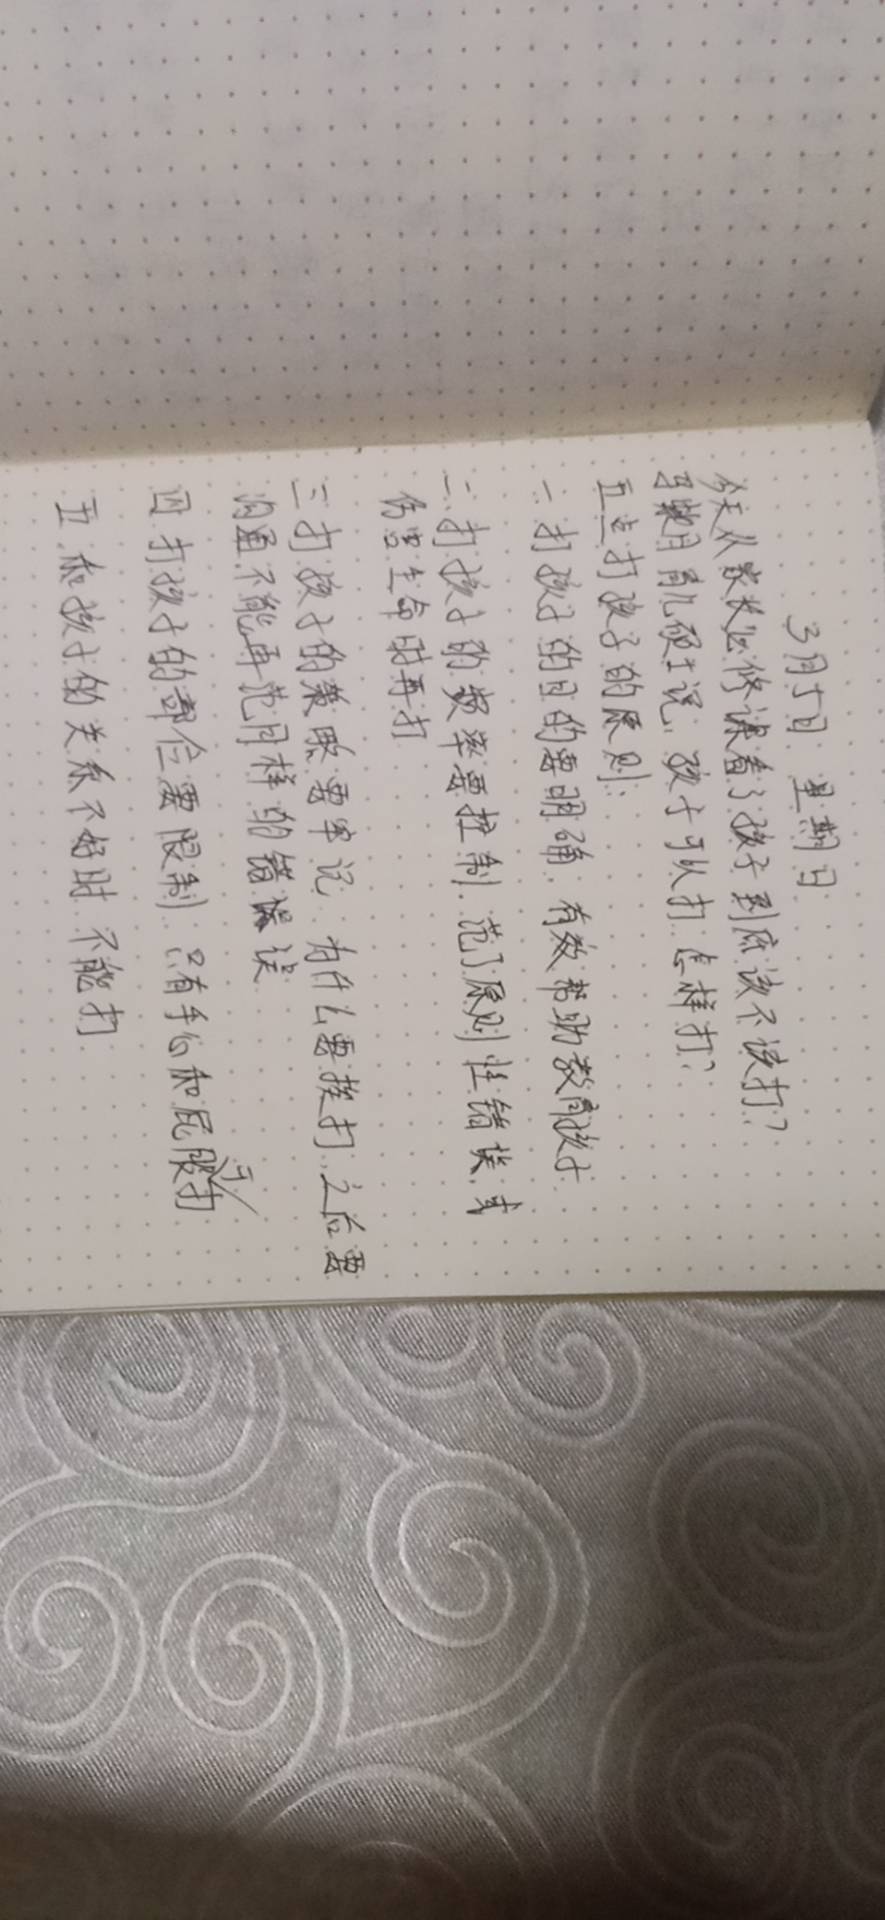 3月5日 星期日
今天从家长必修课看了孩子到底该不该打?
育儿硕士说:孩子可以打.怎样打?
五点打孩子的原则:
一.打孩子的目的要明确.有效帮助教育孩子
二.打孩子的频率要控制.范了原则性错误.或
伤害生命时再打
三打孩子的策略要牢记.为什么要挨打.之后要
沟通.不能再范同样的错误
四.打孩子的部位要限制.只有手心和屁股可打
五.和孩子的关系不好时不能打